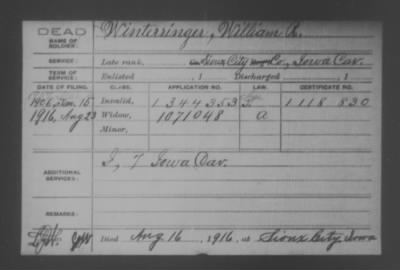 DEAD Winterringer, William R.
NAME OF SOLDIER:
SERVICE: Late rank, Sioux City Co., Iowa Cav.
TERM OF SERVICE: Enlisted , 1 Discharged , 1
DATE OF FILING. CLASS. APPLICATION NO. LAW. CERTIFICATE NO.
15 Invalid, 1344353 1118 830
1916, Aug 23 Widow, 1071048 a
Minor,
ADDITIONAL SERVICES: I, 7 Iowa Cav.
REMARKS:
Died Aug 16, 1916, at Sioux City, Iowa